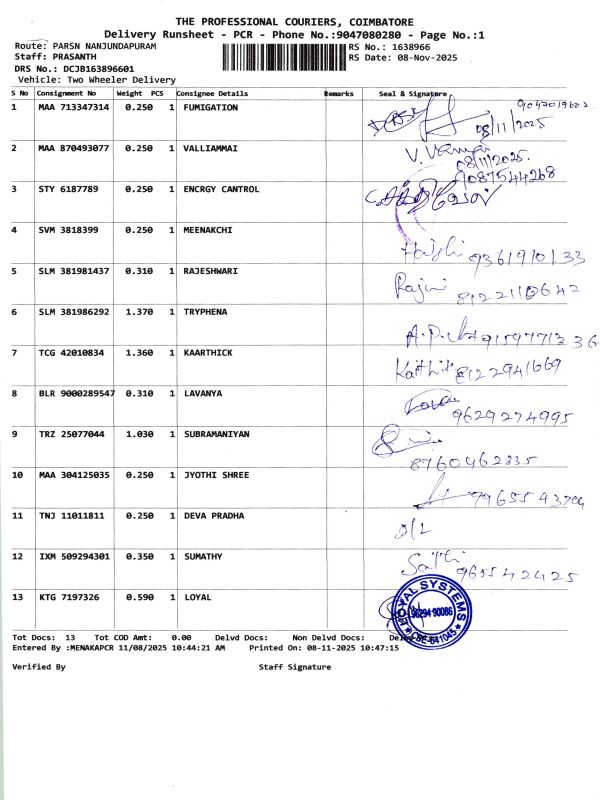 THE PROFESSIONAL COURIERS, COIMBATORE
Delivery Runsheet - PCR - Phone No.:9047080280 - Page No.:1
Route: PARSN NANJUNDAPURAM RS No.: 1638966
Staff: PRASANTH RS Date: 08-Nov-2025
DRS No.: DCJB163896601
Vehicle: Two Wheeler Delivery
S No Consignment No Weight PCS Consignee Details Remarks Seal & Signature
1 MAA 713347314 0.250 1 FUMIGATION
08/11/2025
2 MAA 870493077 0.250 1 VALLIAMMAI
08/11/2025.
9087544268
3 STY 6187789 0.250 1 ENCRGY CANTROL
4 SVM 3818399 0.250 1 MEENAKCHI
9361910133
5 SLM 381981437 0.310 1 RAJESHWARI
Rajini 8122110642
6 SLM 381986292 1.370 1 TRYPHENA
7 TCG 42010834 1.360 1 KAARTHICK
8122941669
8 BLR 9000289547 0.310 1 LAVANYA
9629274995
9 TRZ 25077044 1.030 1 SUBRAMANIYAN
8760462835
10 MAA 304125035 0.250 1 JYOTHI SHREE
11 TNJ 11011811 0.250 1 DEVA PRADHA
D/L
12 IXM 509294301 0.350 1 SUMATHY
965542425
13 KTG 7197326 0.590 1 LOYAL
LOYAL SYSTEMS
96294 90086
CBE-641045
Tot Docs: 13 Tot COD Amt: 0.00 Delvd Docs: Non Delvd Docs:
Entered By :MENAKAPCR 11/08/2025 10:44:21 AM Printed On: 08-11-2025 10:47:15
Verified By Staff Signature